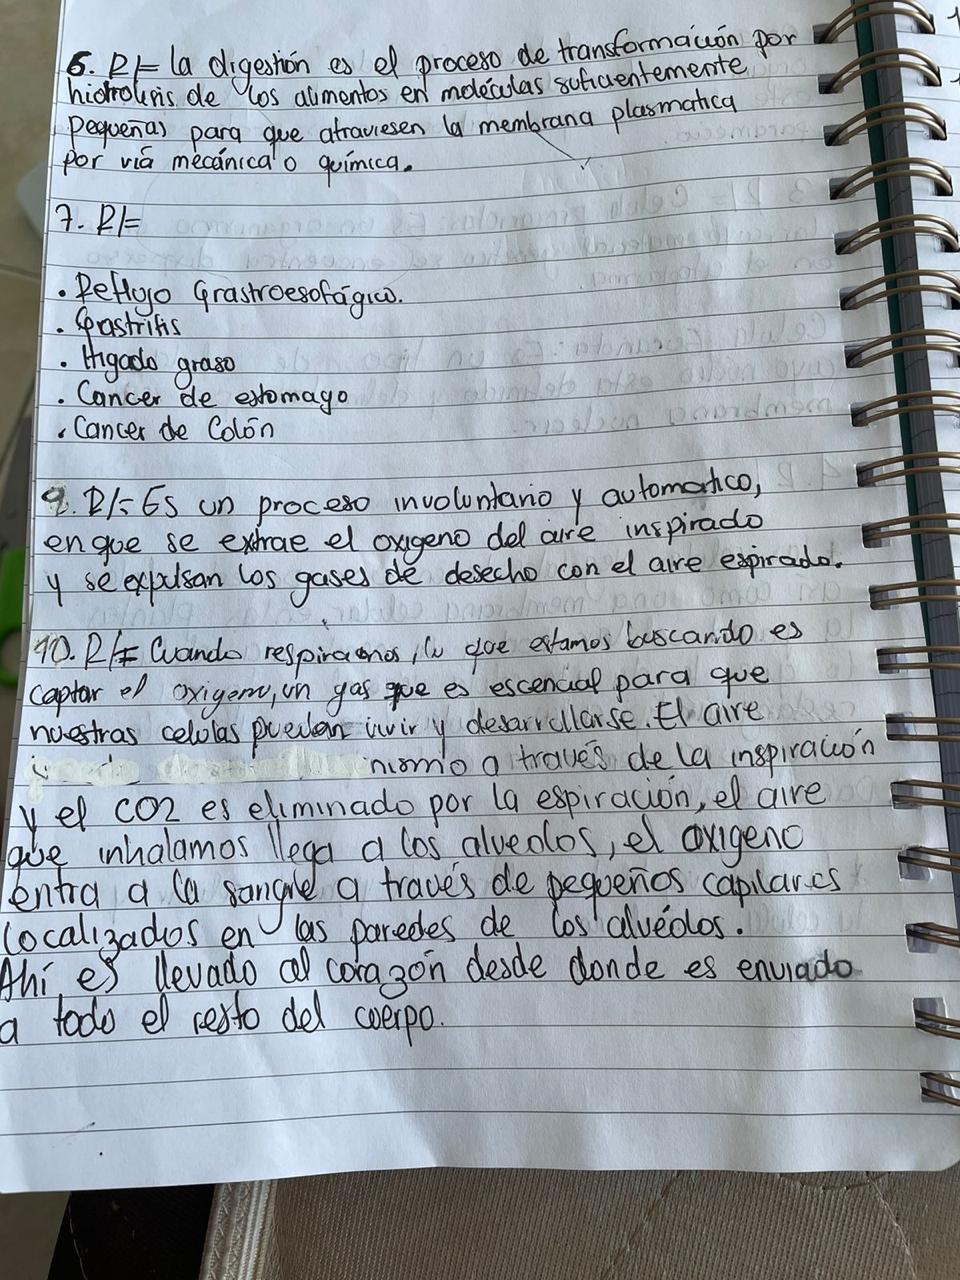 6. R/= la digestión es el proceso de transformación por
hidrolisis de los alimentos en moléculas suficientemente
Pequeñas para que atraviesen la membrana plasmatica
por vía mecánica o química.
7. R/=
• Reflujo Grastroesofágico.
• Gastritis
• Higado graso
• Cancer de estomago
• Cancer de Colón
9. R/= Es un proceso involuntario y automatico,
en que se extrae el oxigeno del aire inspirado
y se expulsan los gases de desecho con el aire espirado.
10. R/= Cuando respiramos, lo que estamos buscando es
captar el oxigeno, un gas que es escencial para que
nuestras celulas puedan vivir y desarrollarse. El aire
nismo a través de la inspiración
y el CO2 es eliminado por la espiración, el aire
que inhalamos llega a los alveolos, el oxigeno
entra a la sangre a través de pequeños capilares
localizados en las paredes de los alvéolos.
Ahí es llevado al corazón desde donde es enviado
a todo el resto del cuerpo.